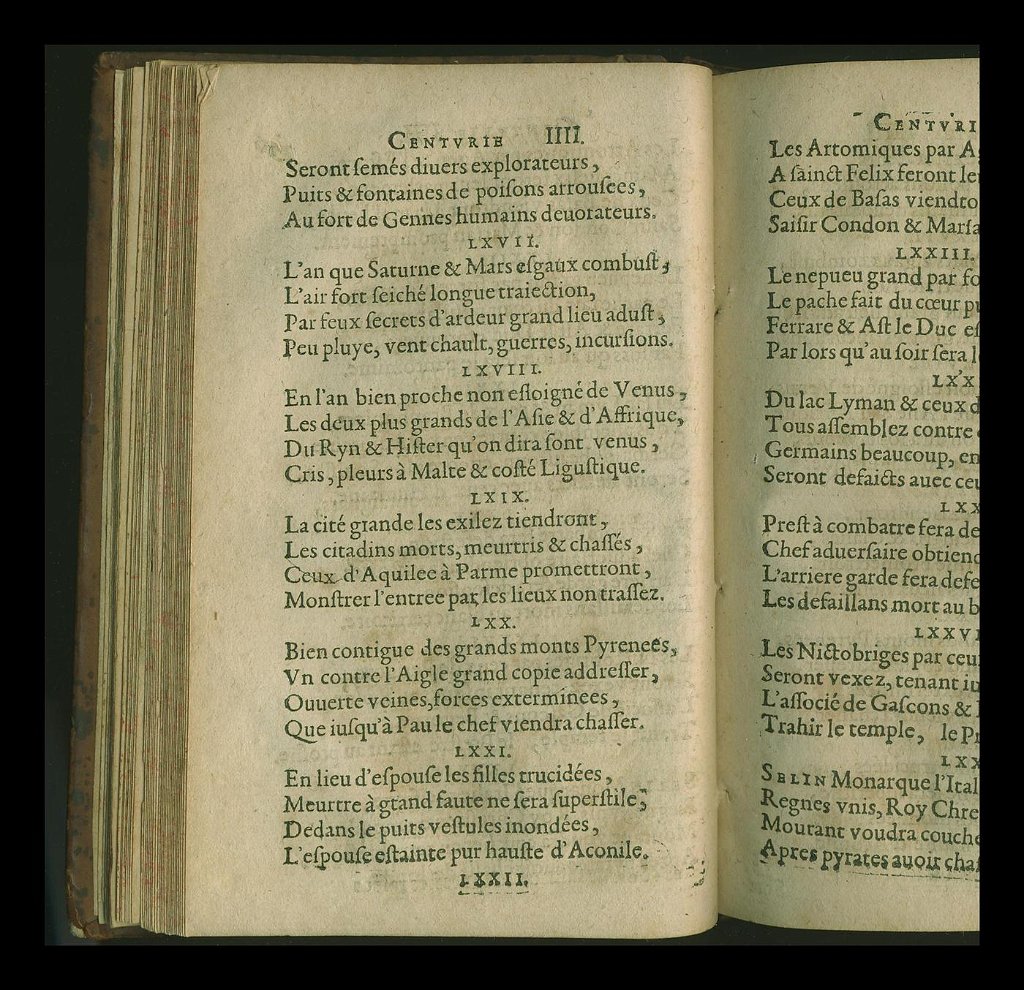 CENTVRIE IIII.
Seront ſemés diuers explorateurs,
Puits & fontaines de poiſons arrouſees,
Au fort de Gennes humains deuorateurs.
LXVII.
L'an que Saturne & Mars eſgaux combuſt,
L'air fort ſeiché longue traiection,
Par feux ſecrets d'ardeur grand lieu aduſt,
Peu pluye, vent chault, guerres, incurſions.
LXVIII.
En l'an bien proche non eſloigné de Venus,
Les deux plus grands de l'Aſie & d'Affrique,
Du Ryn & Hiſter qu'on dira ſont venus,
Cris, pleurs à Malte & coſté Liguſtique.
LXIX.
La cité grande les exilez tiendront,
Les citadins morts, meurtris & chaſſés,
Ceux d'Aquilee à Parme promettront,
Monſtrer l'entree par les lieux non traſſez.
LXX.
Bien contigue des grands monts Pyrenees,
Vn contre l'Aigle grand copie addreſſer,
Ouuerte veines, forces exterminees,
Que iuſqu'à Pau le chef viendra chaſſer.
LXXI.
En lieu d'eſpouſe les filles trucidées,
Meurtre à grand faute ne ſera ſuperſtile,
Dedans le puits veſtules inondées,
L'eſpouſe eſtainte pur hauſte d'Aconile.
LXXII.
CENTVRI
Les Artomiques par A
A ſainct Felix feront le
Ceux de Baſas viendro
Saiſir Condon & Marſa
LXXIII.
Le nepueu grand par fo
Le pache fait du cœur p
Ferrare & Aſt le Duc eſ
Par lors qu'au ſoir ſera l
LXX
Du lac Lyman & ceux d
Tous aſſemblez contre
Germains beaucoup, en
Seront defaicts auec ceu
LXX
Preſt à combatre fera de
Chef aduerſaire obtiend
L'arriere garde fera defe
Les defaillans mort au b
LXXVI
Les Nictobriges par ceu
Seront vexez, tenant iu
L'aſſocié de Gaſcons &
Trahir le temple, le Pr
LXX
SELIN Monarque l'Ital
Regnes vnis, Roy Chre
Mourant voudra couche
Apres pyrates auoir chaſ